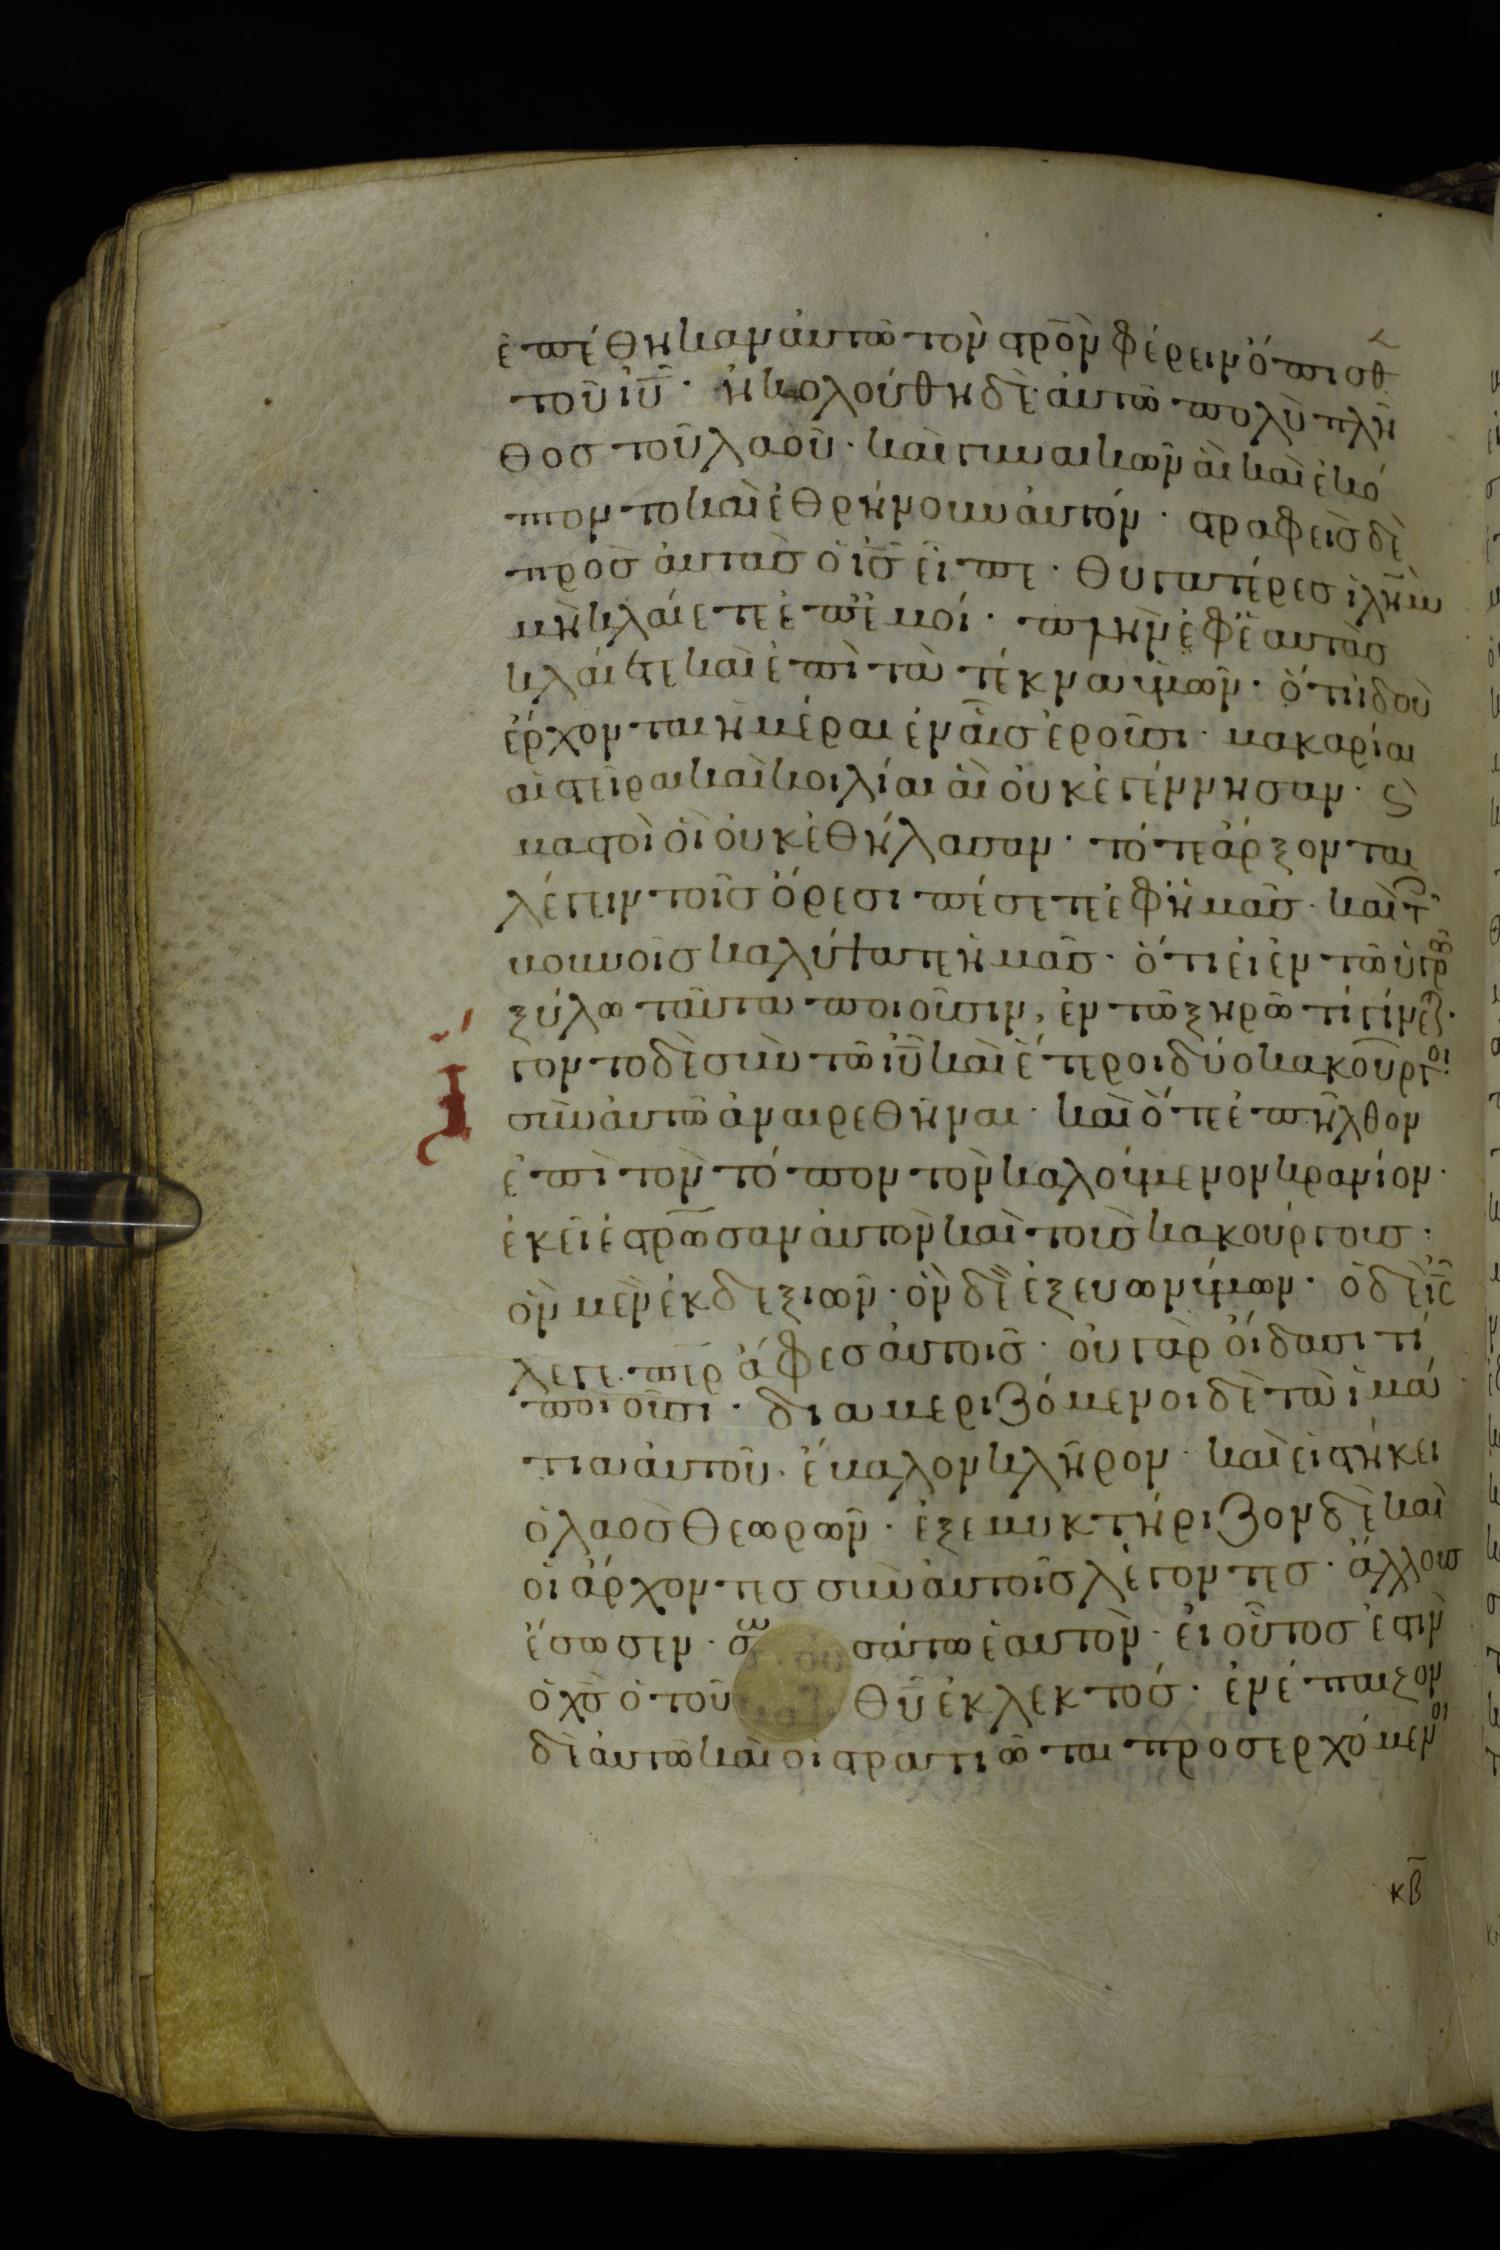 ἐπέθηκαν αὐτῶ τὸν στ̅ρὸν φέρειν ὄπισθ
τοῦ ἰῦ̅· ἠκολούθη δὲ αὐτῶ πολὺ πλῆ
θοσ τοῦ λαοῦ· καὶ γυναικῶν ἃι καὶ ἐκό
πτοντο καὶ ἐθρήνουν αὐτόν· στραφεὶσ δὲ
πρὸσ αὐτὰσ ὁ ἰσ̅ εἶπε· θυγατέρεσ ἰλῆ̅μ
μὴ κλάιετε ἐπ' ἐμοί· πλὴν ἐφ' ἑαυτὰσ
κλάιετε καὶ ἐπὶ τὰ τέκνα ὑμῶν· ὅτι ἰδοὺ
ἔρχονται ἡμέραι ἐν αἷσ ἐροῦσι· μακάριαι
αἱ στεῖραι καὶ κοιλίαι ἃι οὐκ ἐγέννησαν· ϗ
μαστοὶ ὁὶ οὐκ ἐθήλασαν· τότε ἄρξονται
λέγειν τοῖσ ὄρεσι πέσετε ἐφ' ἡμᾶσ· καὶ τ
βουνοῖσ καλύψατε ἡμᾶσ· ὅτι εἰ ἐν τῶ ὑγρ
ξύλω ταῦτα ποιοῦσιν, ἐν τῶ ξηρῶ τί γένη·
Ἤ γοντο δὲ σὺν τῶ ἰῦ̅ καὶ ἕτεροι δύο κακοῦργοι
σὺν αὐτῶ ἀναιρεθῆναι· καὶ ὅτε ἐπῆλθον
ἐπὶ τὸν τόπον τὸν καλούμενον κρανίον·
ἐκεῖ ἐστ̅ρωσαν αὐτὸν καὶ τοὺσ κακούργουσ·
ὃν μὲν ἐκ δεξιῶν· ὃν δὲ ἐξ ευωνύμων· ὁ δὲ ἰσ̅
λεγε· πε̅ρ ἄφεσ αὐτοῖσ· οὐ γὰρ ὄιδασι τί
ποιοῦσι· διαμεριζόμενοι δὲ τὰ ἱμά
τια αὐτοῦ· ἔβαλον κλῆρον· καὶ εἱστήκει
ὁ λαὸσ θεωρῶν· ἐξεμυκτήριζον δὲ καὶ
οἱ ἄρχοντεσ σὺν αὐτοῖσ λέγοντεσ· ἄλλουσ
ἔσωσεν· σω σάτω ἑαυτὸν· εἰ οὗτοσ ἐστὶν
ὁ χσ̅ ὁ τοῦ θῦ̅ ἐκλεκτόσ· ἐνέπαιζον
δὲ αὐτῶ καὶ οἱ στρατιῶται προσερχόμενοι
κβ̅